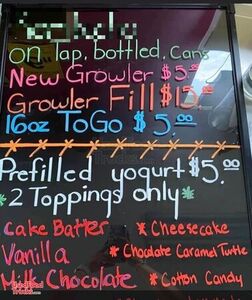 on Tap, bottled, Cans
New Growler $5.00
Growler Fill $15.00
16oz ToGo $5.00
Prefilled yogurt $5.00
*2 Toppings only*
Cake Batter * Cheesecake
Vanilla * Chocolate Caramel Turtle
Milk Chocolate * Cotton Candy